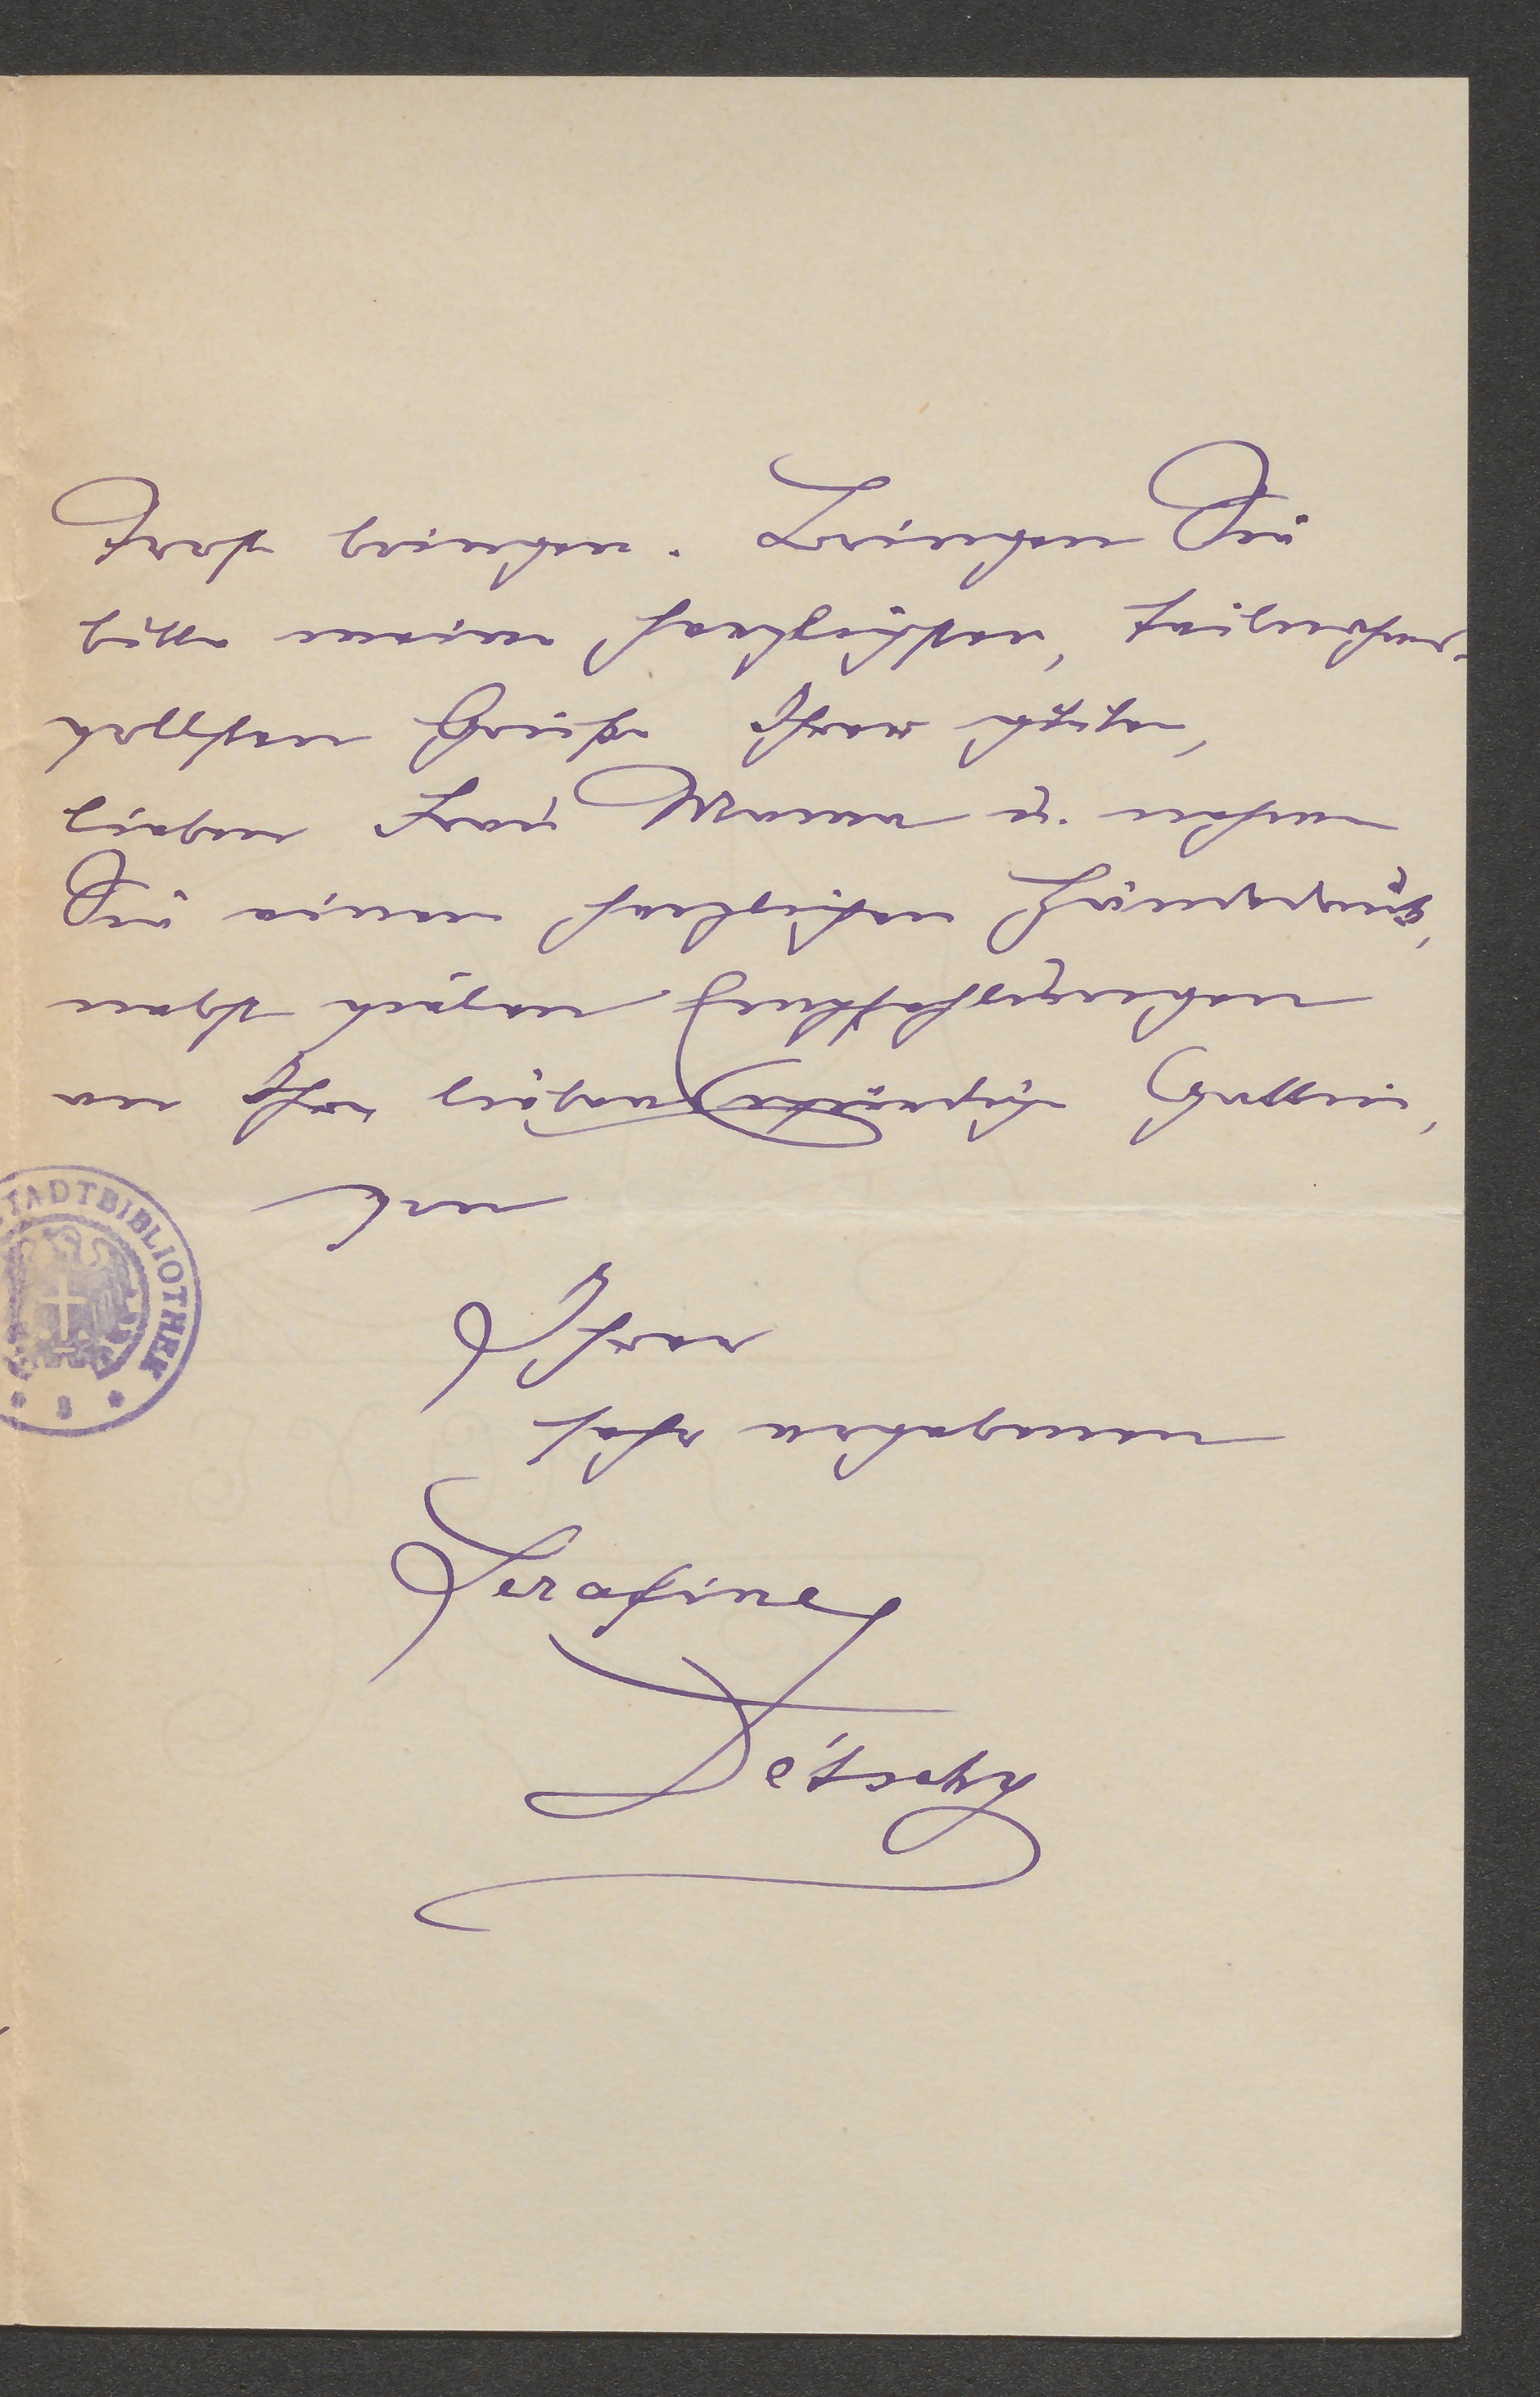 bringen. Bringen Sie
bitte meine herzlichsten, teilnahms-
vollsten Grüße Ihrer
lieben Frau Mama u. nehmen
Sie einen herzlichen Händedruck,
Empfehlungen
an Ihre liebe verehrte Gattin,
von
Ihrer
sehr ergebenen
Serafine
Détschy
STADTBIBLIOTHEK